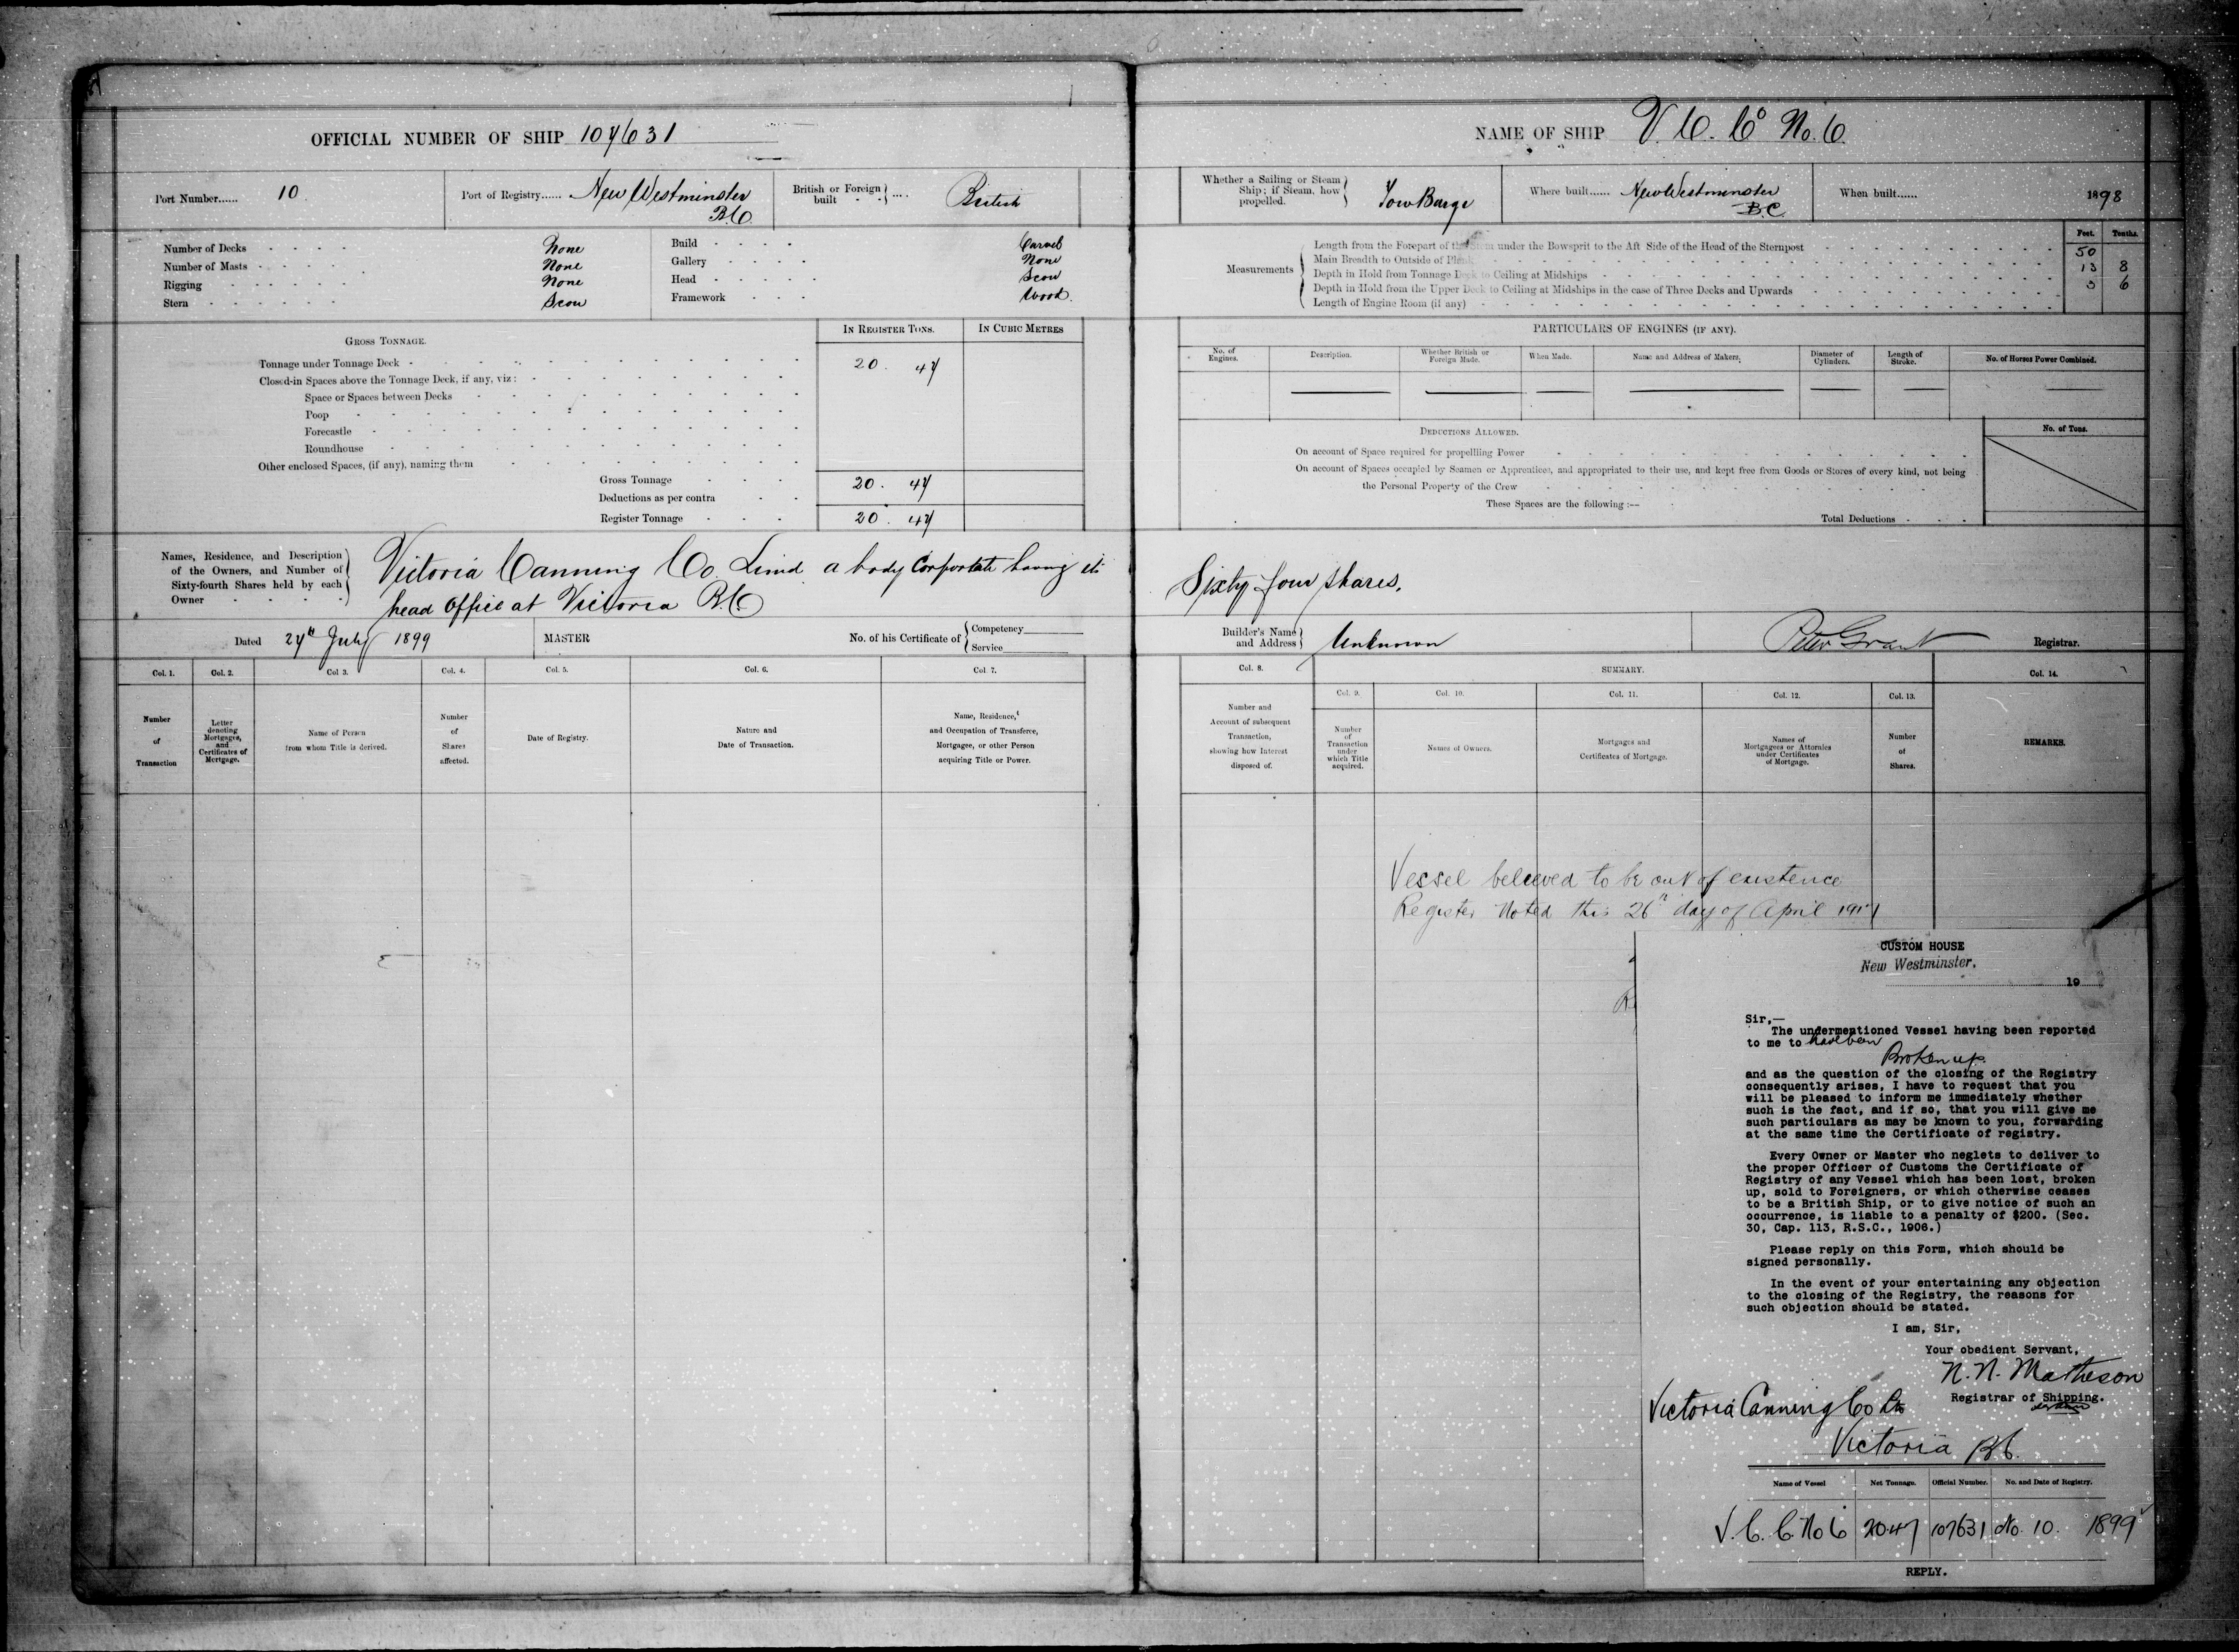 OFFICIAL NUMBER OF SHIP 107631
Port Number...... 10
Port of Registry...... New Westminster B.C.
British or Foreign built - - .... British
Number of Decks - - - - None
Number of Masts - - - - None
Rigging - - - - None
Stern - - - - Scow
Build - - - - Carvel
Gallery - - - - None
Head - - - - Scow
Framework - - - Wood.
GROSS TONNAGE.
IN REGISTER TONS.
IN CUBIC METRES
Tonnage under Tonnage Deck - 20. 47
Closed-in Spaces above the Tonnage Deck, if any, viz:
Space or Spaces between Decks
Poop
Forecastle
Roundhouse
Other enclosed Spaces, (if any), naming them
Gross Tonnage 20. 47
Deductions as per contra
Register Tonnage 20. 47
Names, Residence, and Description
of the Owners, and Number of
Sixty-fourth Shares held by each
Owner
Victoria Canning Co. Limd. a body Corporate having its
head office at Victoria B.C.
Dated 27th July 1899
MASTER
No. of his Certificate of
Competency
Service
Col. 1.
Col. 2.
Col 3.
Col. 4.
Col. 5.
Col. 6.
Col. 7.
Number
of
Transaction
Letter
denoting
Mortgages,
and
Certificates of
Mortgage.
Name of Person
from whom Title is derived.
Number
of
Shares
affected.
Date of Registry.
Nature and
Date of Transaction.
Name, Residence,
and Occupation of Transferee,
Mortgagee, or other Person
acquiring Title or Power.
NAME OF SHIP V. C. Co No. 6
Whether a Sailing or Steam
Ship; if Steam, how
propelled.
Tow Barge
Where built...... New Westminster B.C.
When built...... 1898
Measurements
Feet. Tenths.
Length from the Forepart of the Stem under the Bowsprit to the Aft Side of the Head of the Sternpost 50
Main Breadth to Outside of Plank 13 8
Depth in Hold from Tonnage Deck to Ceiling at Midships 3 6
Depth in Hold from the Upper Deck to Ceiling at Midships in the case of Three Decks and Upwards
Length of Engine Room (if any)
PARTICULARS OF ENGINES (IF ANY).
No. of
Engines.
Description.
Whether British or
Foreign Made.
When Made.
Name and Address of Makers.
Diameter of
Cylinders.
Length of
Stroke.
No. of Horses Power Combined.
DEDUCTIONS ALLOWED.
No. of Tons.
On account of Space required for propellling Power
On account of Spaces occupied by Seamen or Apprentices, and appropriated to their use, and kept free from Goods or Stores of every kind, not being
the Personal Property of the Crew
These Spaces are the following :—
Total Deductions
Sixty four shares.
Builder's Name
and Address
Unknown
Peter Grant Registrar.
Col. 8.
SUMMARY.
Col. 14.
Col. 9.
Col. 10.
Col. 11.
Col. 12.
Col. 13.
Number and
Account of subsequent
Transaction,
showing how Interest
disposed of.
Number
of
Transaction
under
which Title
acquired.
Names of Owners.
Mortgages and
Certificates of Mortgage.
Names of
Mortgagees or Attornies
under Certificates
of Mortgage.
Number
of
Shares.
REMARKS.
Vessel believed to be out of existence
Register Noted this 26th day of April
CUSTOM HOUSE
New Westminster.
19
Sir,—
The undermentioned Vessel having been reported
to me to have been
Broken up.
and as the question of the closing of the Registry
consequently arises, I have to request that you
will be pleased to inform me immediately whether
such is the fact, and if so, that you will give me
such particulars as may be known to you, forwarding
at the same time the Certificate of registry.
Every Owner or Master who neglets to deliver to
the proper Officer of Customs the Certificate of
Registry of any Vessel which has been lost, broken
up, sold to Foreigners, or which otherwise ceases
to be a British Ship, or to give notice of such an
occurrence, is liable to a penalty of $200. (Sec.
30, Cap. 113, R.S.C., 1906.)
Please reply on this Form, which should be
signed personally.
In the event of your entertaining any objection
to the closing of the Registry, the reasons for
such objection should be stated.
I am, Sir,
Your obedient Servant,
N. N. Matheson
Registrar of Shipping.
Victoria Canning Co Ltd
Victoria B.C.
Name of Vessel
Net Tonnage.
Official Number.
No. and Date of Registry.
V. C. C. No 6 20.47 107631 No. 10. 1899
REPLY.